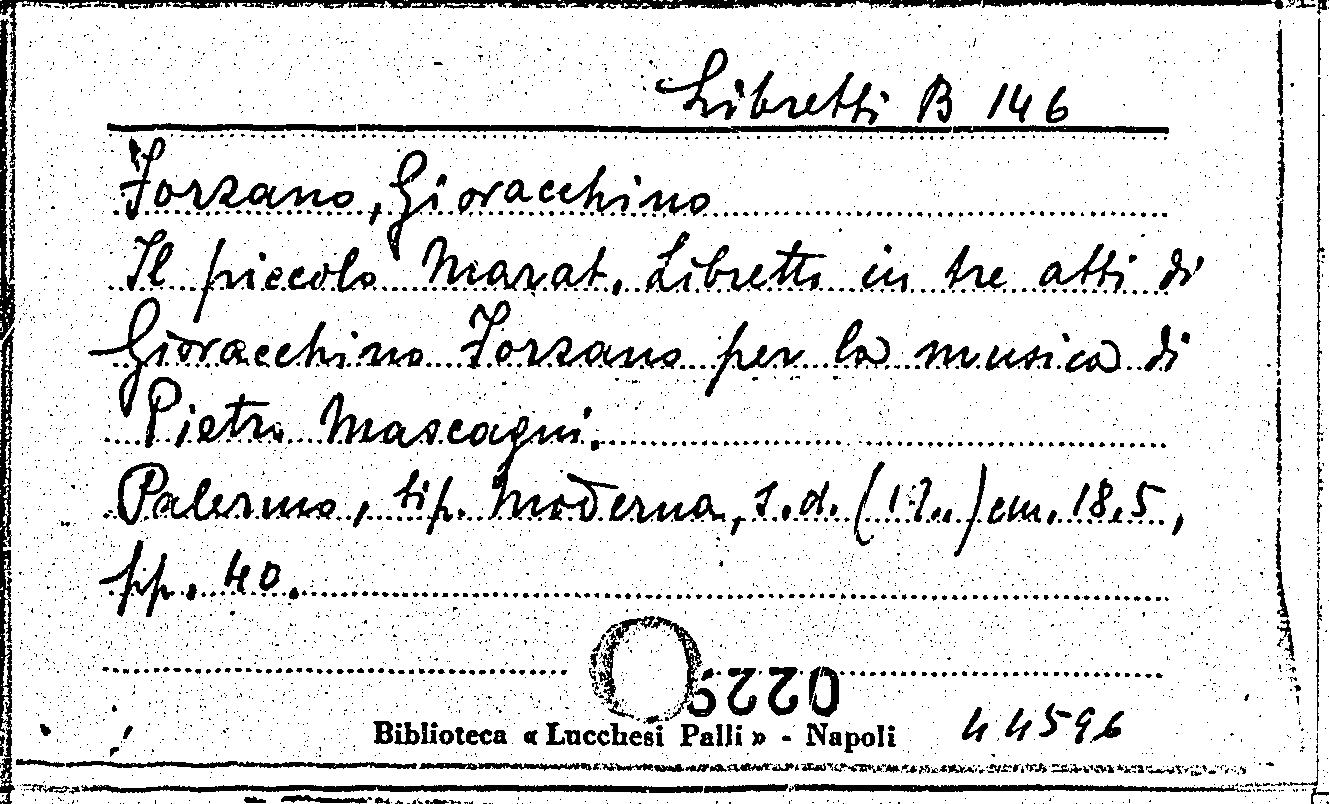 Libretti B 146
Forzano, Giovacchino
Il piccolo Marat. Libretto in tre atti di
Giovacchino Forzano per la musica di
Pietro Mascagni.
Palermo, tip. Moderna, s.d. (19..) cm. 18.5,
pp. 40.
Biblioteca « Lucchesi Palli » - Napoli
44596